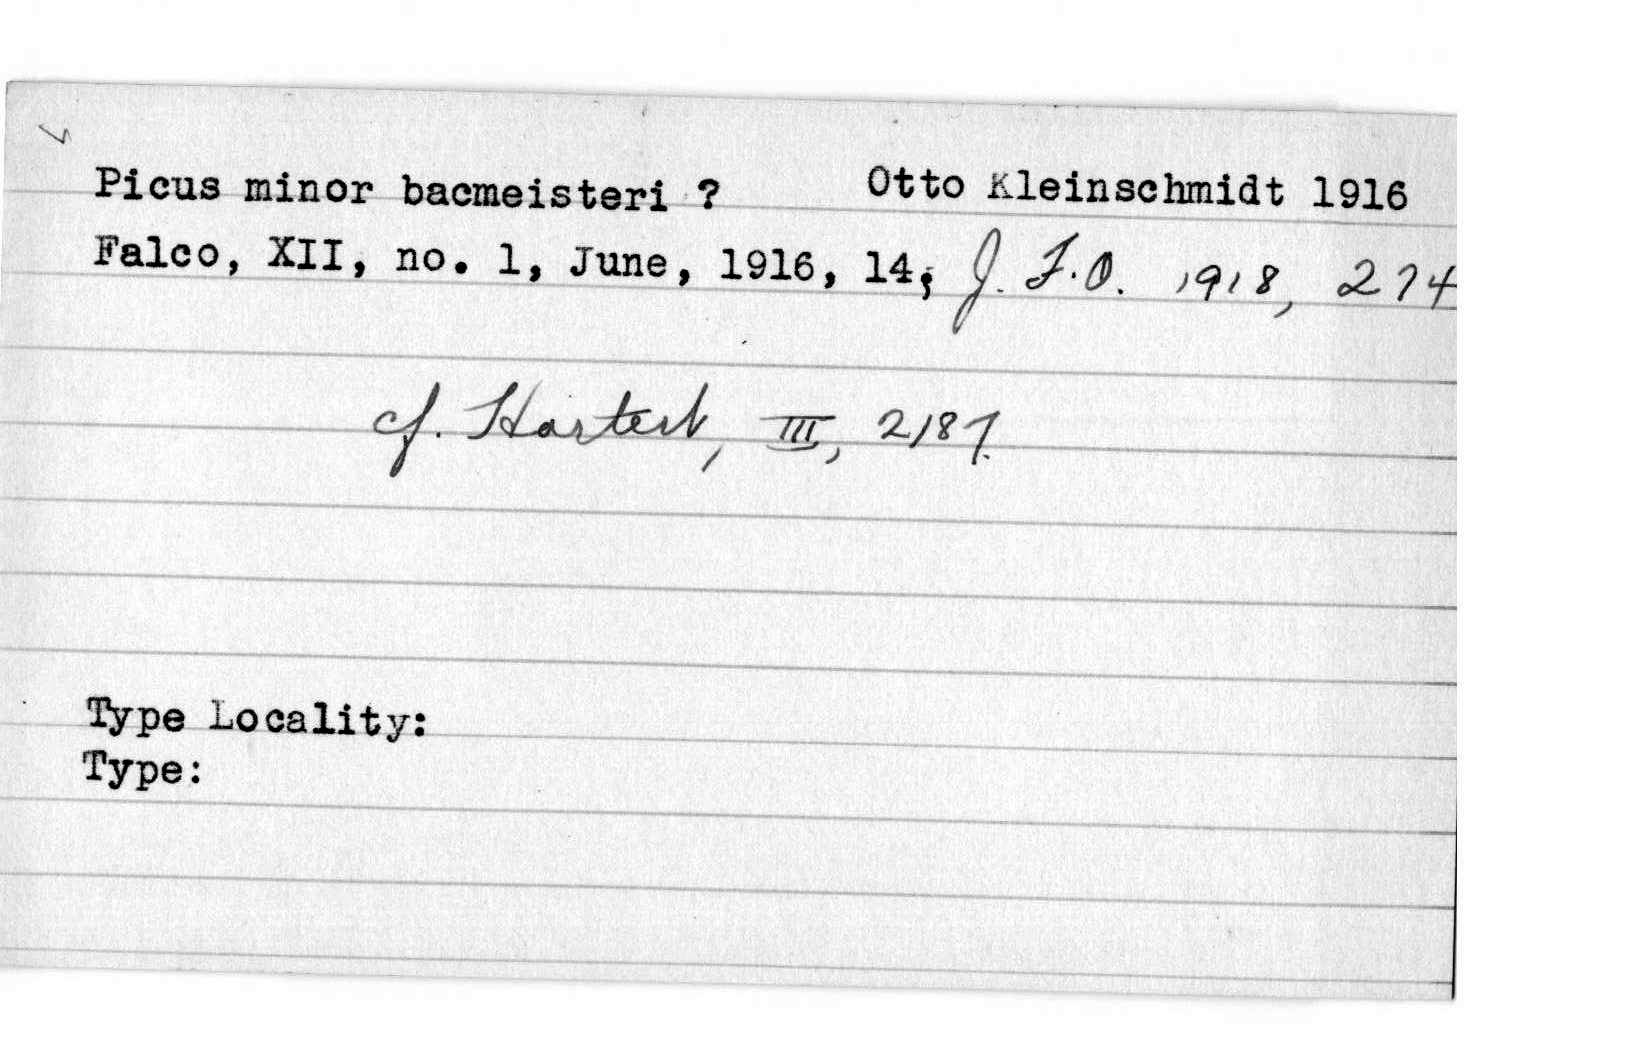 Picus minor bacmeisteri ? Otto Kleinschmidt 1916
Falco, XII, no. 1, June, 1916, 14; J. F. O. 1918, 274
cf. Hartert, III, 2187.
Type Locality:
Type: